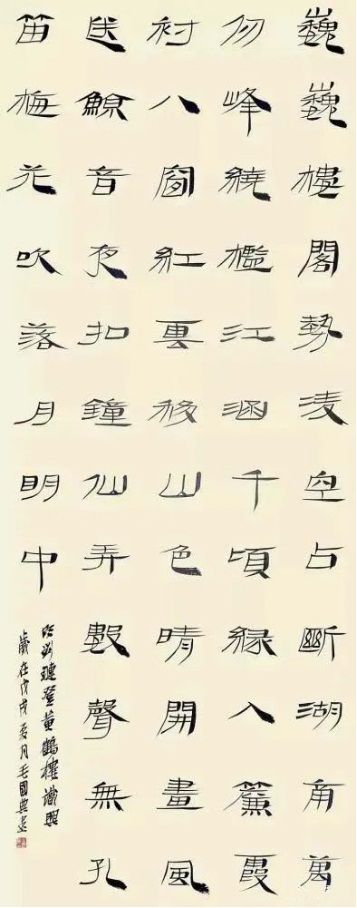 巍巍樓閣勢淩空占斷湖角萬
仞峰繞檻江涵千頃緑入簾霞
衬八窗紅雲移山色晴開畫風
送鯨音夜扣鐘仙弄數聲無孔
笛梅花吹落月明中
明劉璉登黄鶴樓謾興
歲在戊戌月毛國典書